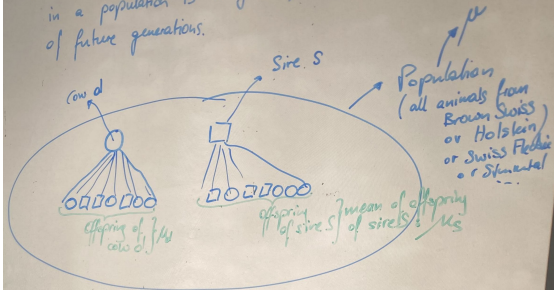 in a population is
of future generations.
μ
Sire S
Cow d
Population
(all animals from
Brown Swiss
or Holstein)
or Swiss
or Simmental
...
offspring of
cow d } μd
offspring
of sire S } mean of offspring
of sire S : μS